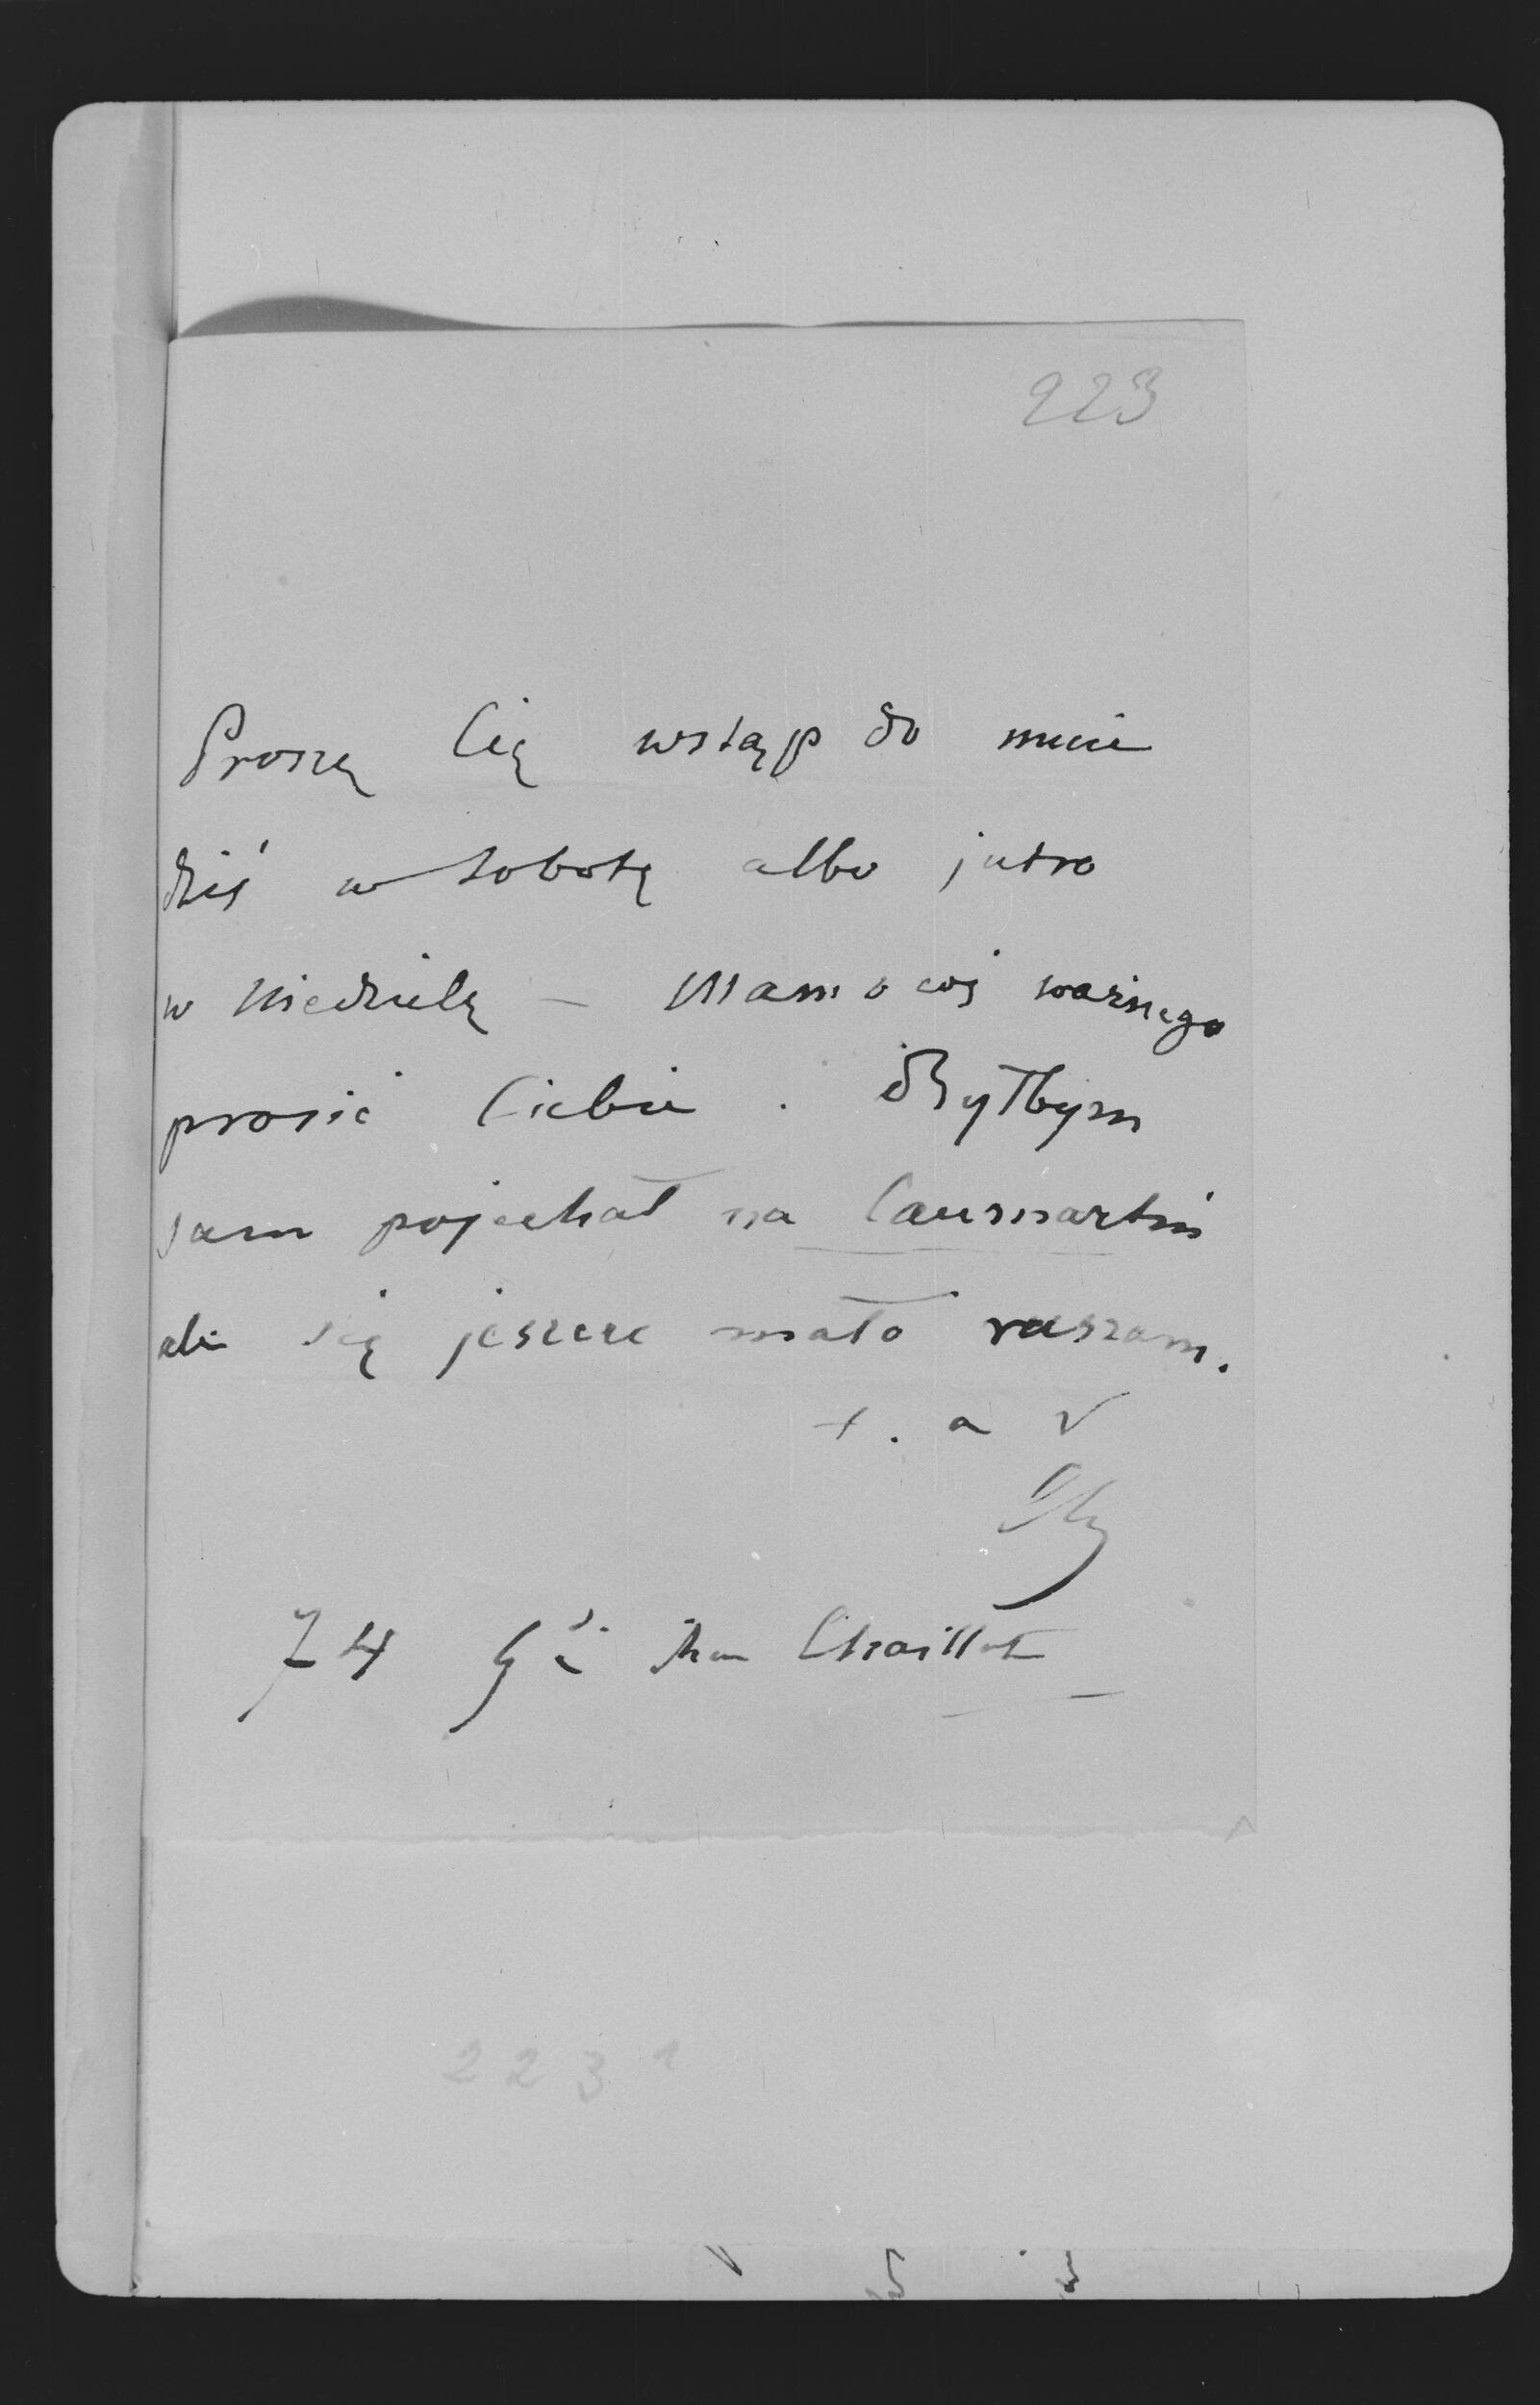 223
Proszę Cię wstąp do mnie
dziś w Sobotę albo jutro
w Niedzielę – Mam o coś ważnego
prosić Ciebie. Byłbym
sam pojechał na Caumartin
ale się jeszcze mało ruszam.
t. a V
74 Chaillot
223